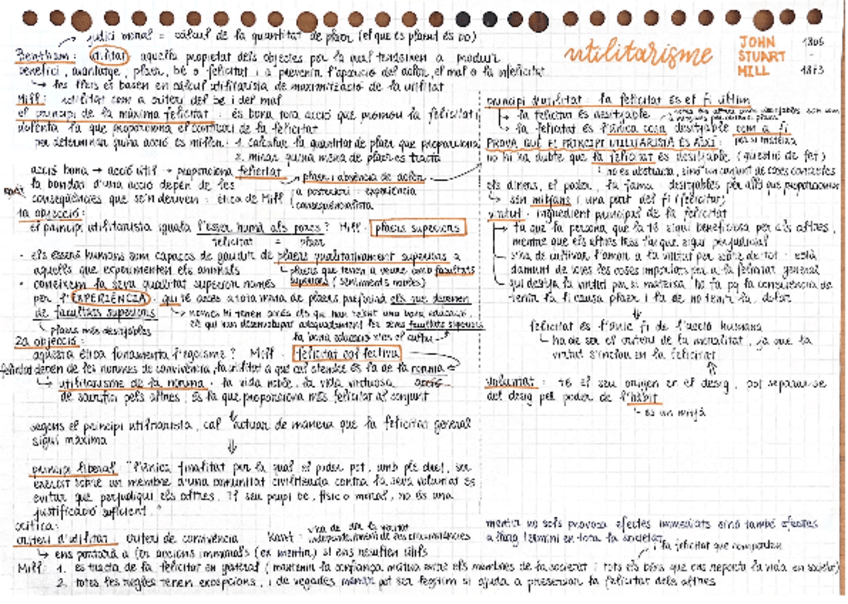 utilitarisme
JOHN STUART MILL
1806 - 1873
judici moral = càlcul de la quantitat de plaer (el que és plaent és bo)
Bentham: utilitat: aquella propietat dels objectes per la qual tendeixen a produir
benefici, avantatge, plaer, bé o felicitat i a prevenir l'aparició del dolor, el mal o la infelicitat
les lleis es basen en càlcul utilitarista de maximització de la utilitat
Mill: utilitat com a criteri del bé i del mal
el principi de la màxima felicitat: és bona tota acció que promou la felicitat i
dolenta la que proporciona el contrari de la felicitat
per determinar quina acció és millor: 1. calcular la quantitat de plaer que proporciona
2. mirar quina mena de plaer es tracta
acció bona → acció útil → proporciona felicitat
plaer i absència de dolor
la bondat d'una acció depèn de les
conseqüències que se'n deriven: ètica de Mill
a posteriori: experiència
conseqüencialista
1a objecció:
el principi utilitarista iguala l'ésser humà als porcs? Mill: plaers superiors
felicitat = plaer
· els éssers humans som capaços de gaudir de plaers qualitativament superiors a
aquells que experimenten els animals
plaers que tenen a veure amb facultats
superiors (sentiments nobles)
· coneixem la seva qualitat superior només
per l'EXPERIÈNCIA: qui té accés a tota mena de plaers prefereix els que depenen
de facultats superiors
només hi tenen accés els que han rebut una bona educació,
els que han desenvolupat adequadament les seves facultats superiors
plaers més desitjables
la bona educació
2a objecció:
aquesta ètica fonamenta l'egoisme? Mill: felicitat col·lectiva
felicitat depèn de les normes de convivència, la utilitat a què cal atendre és la de la norma
utilitarisme de la norma: la vida noble, la vida virtuosa
de sacrifici pels altres, és la que proporciona més felicitat al conjunt
segons el principi utilitarista, cal actuar de manera que la felicitat general
sigui màxima
principi liberal: "l'única finalitat per la qual el poder pot, amb ple dret, ser
exercit sobre un membre d'una comunitat civilitzada contra la seva voluntat és
evitar que perjudiqui els altres. El seu propi bé, físic o moral, no és una
justificació suficient."
crítica:
criteri d'utilitat: criteri de convivència
Kant: ha de dir la veritat
independentment de les circumstàncies
ens portarà a fer accions immorals (ex mentir) si ens resulten útils
Mill: 1. es tracta de la felicitat en general (mantenir la confiança mútua entre els membres de la societat: tots els béns que ens reporta la vida en societat)
2. totes les regles tenen excepcions, i de vegades mentir pot ser legítim si ajuda a preservar la felicitat dels altres
principi d'utilitat: la felicitat és el fi últim
la felicitat és desitjable
la felicitat és l'única cosa desitjable com a fi
per si mateixa
PROVA QUE EL PRINCIPI UTILITARISTA ÉS AIXÍ:
no hi ha dubte que la felicitat és desitjable (qüestió de fet)
no és abstracta, sinó un conjunt de coses concretes
els diners, el poder, la fama: desitjables per allò que proporcionen
són mitjans i una part del fi (felicitat)
virtut: ingredient principal de la felicitat
fa que la persona que la té sigui beneficiosa per als altres,
mentre que els altres trets fan que sigui perjudicial
s'ha de cultivar l'amor a la virtut per sobre de tot: està
damunt de totes les coses importants per a la felicitat general
qui desitja la virtut per si mateixa, ho fa pq la consciència de
tenir-la li causa plaer i la de no tenir-la, dolor
felicitat és l'únic fi de l'acció humana
ha de ser el criteri de la moralitat, ja que la
virtut s'inclou en la felicitat
voluntat: té el seu origen en el desig, pot separar-se
del desig pel poder de l'hàbit
és un mitjà
mentir no sols provoca efectes immediats sinó també efectes
a llarg termini en tota la societat
i la felicitat que comporten